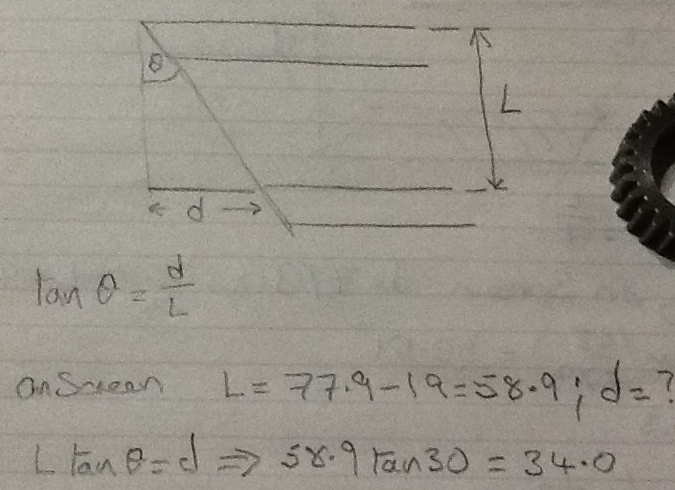 θ
L
← d →
tan θ = d/L
onScreen L = 77.9 - 19 = 58.9 ; d = ?
L tan θ = d ⇒ 58.9 tan 30 = 34.0